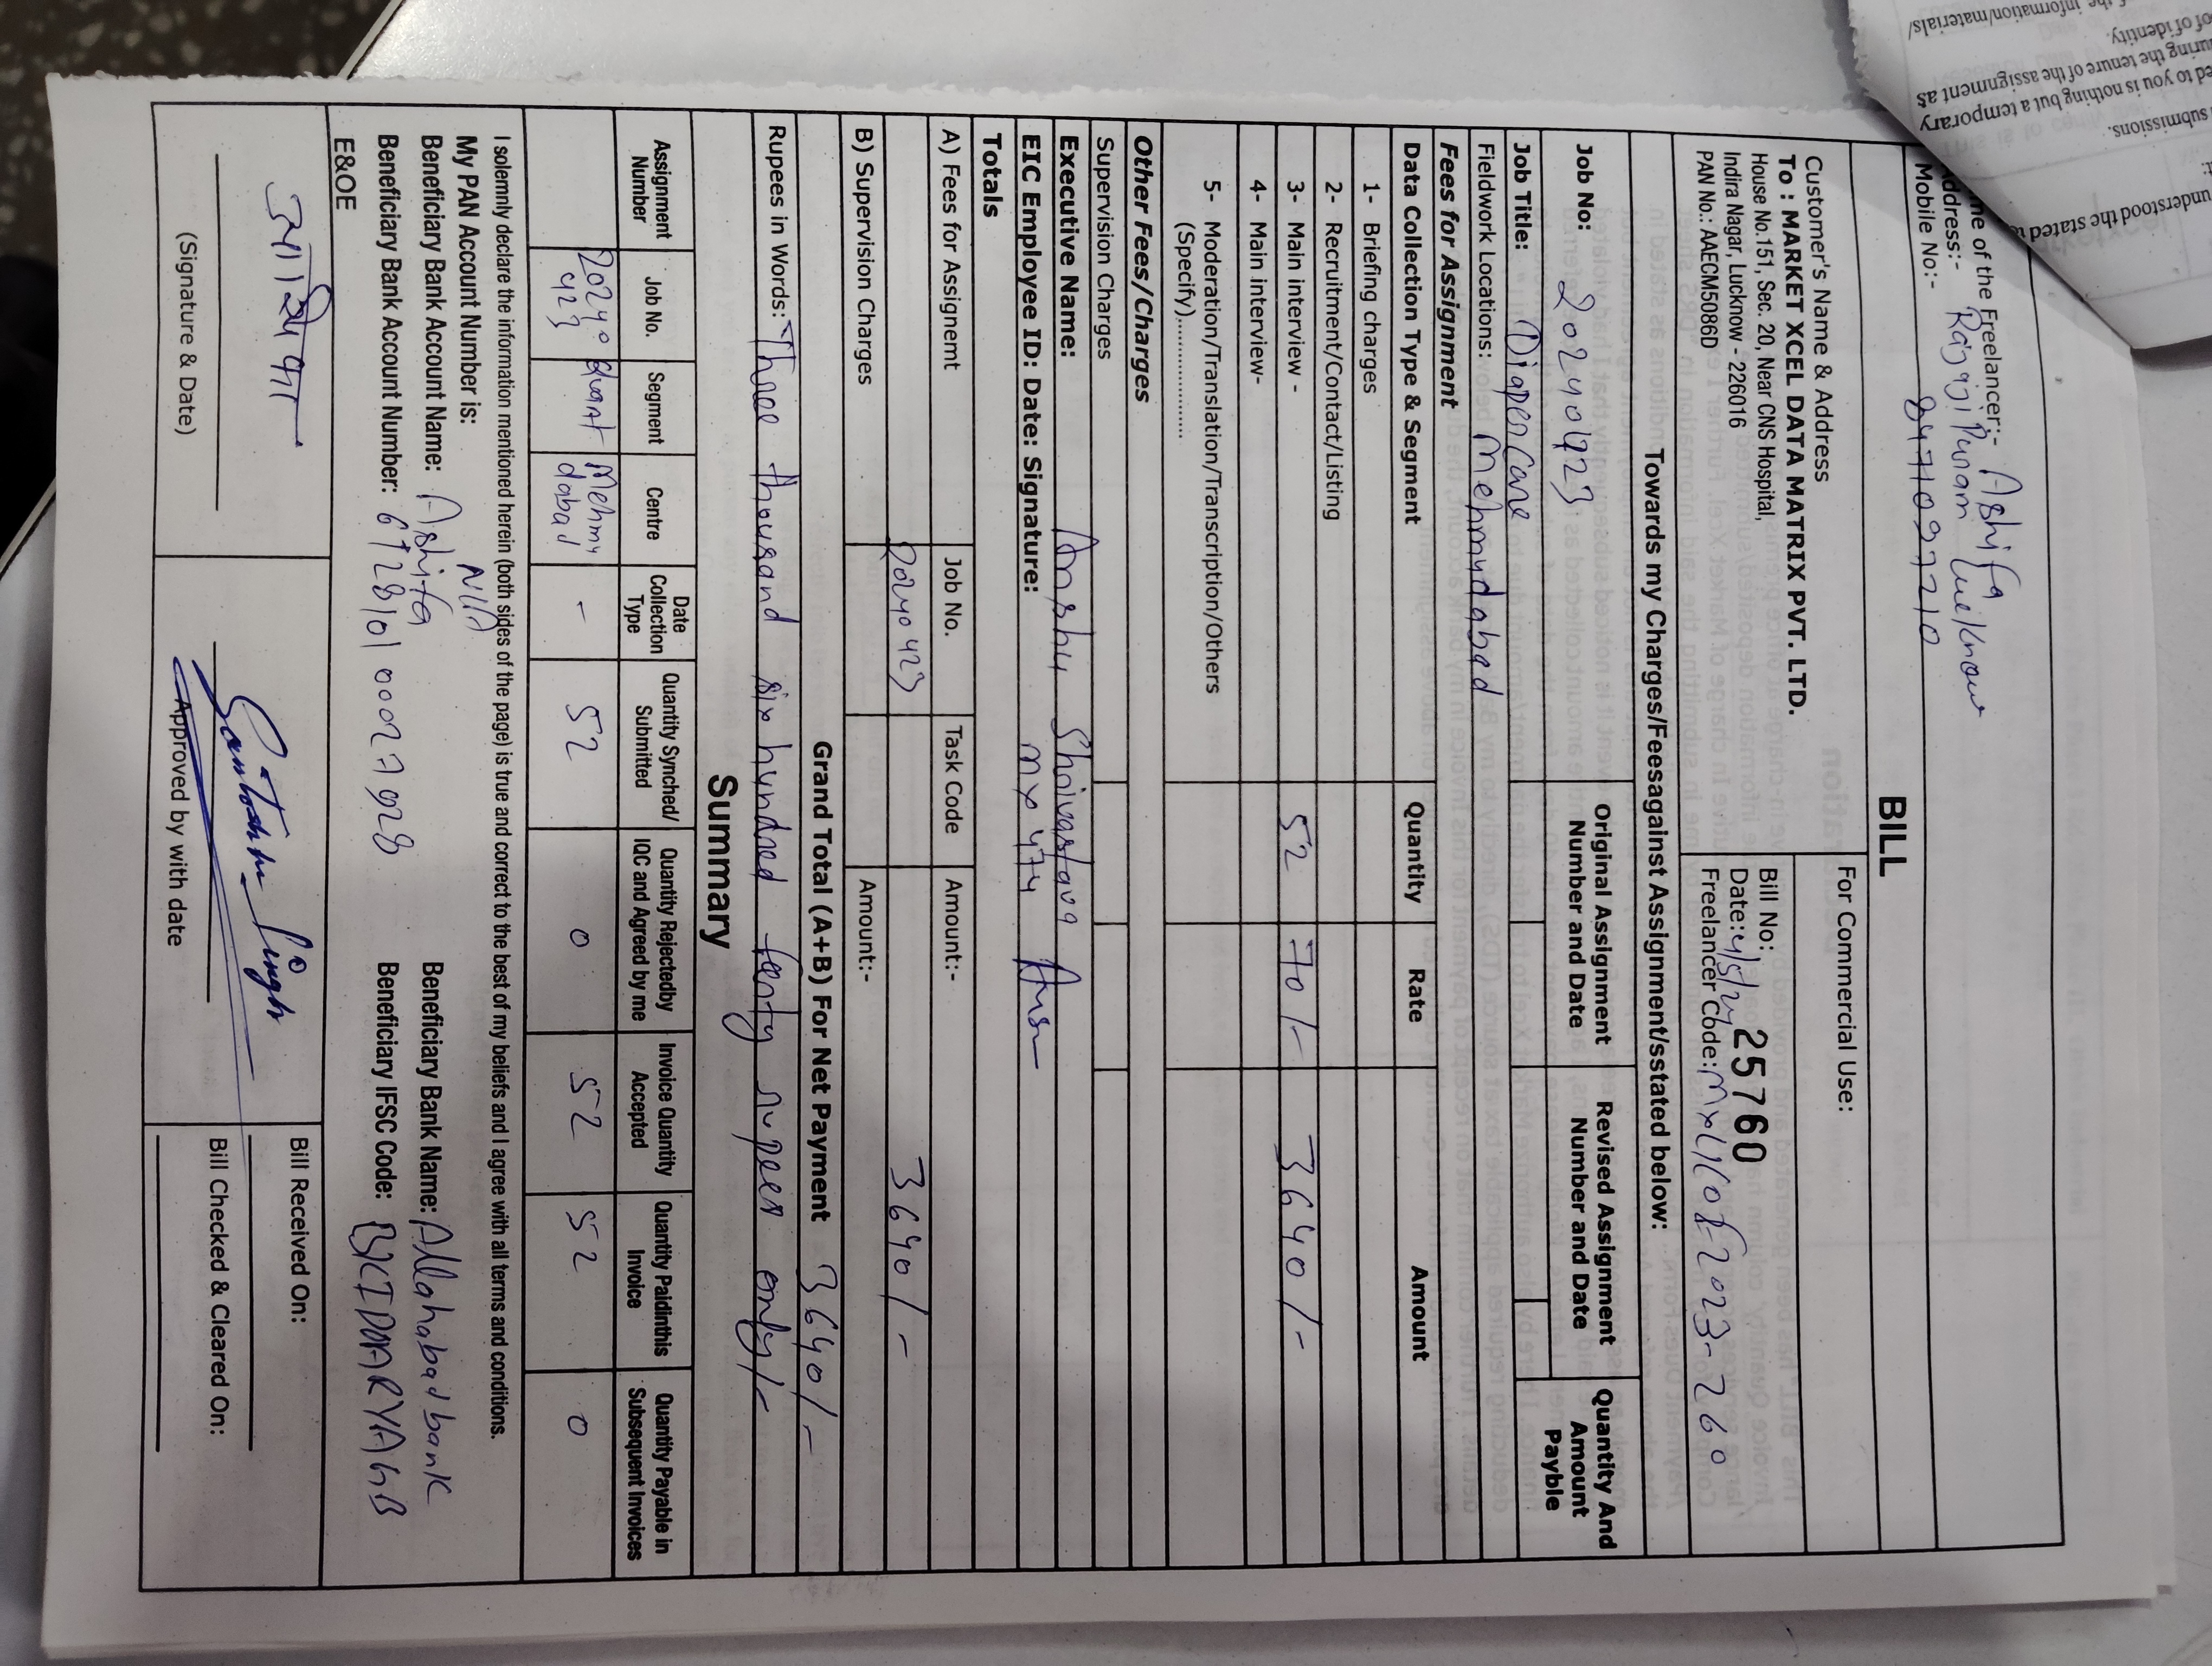 me of the Freelancer:- Ashifa
ddress:- Rajajipuram Lucknow
Mobile No:- 8471099210
BILL
Customer's Name & Address
To : MARKET XCEL DATA MATRIX PVT. LTD.
House No.151, Sec. 20, Near CNS Hospital,
Indira Nagar, Lucknow - 226016
PAN No.: AAECM5086D
For Commercial Use:
Bill No: 25760
Date: 4/5/24
Freelancer Code: MXL1COF2023-260
Towards my Charges/Feesagainst Assignment/sstated below:
Job No: 20240423
Original Assignment Number and Date
Revised Assignment Number and Date
Quantity And Amount Payble
Job Title: Diaper Care
Fieldwork Locations: Mehmudabad
Fees for Assignment
Data Collection Type & Segment Quantity Rate Amount
1- Briefing charges
2- Recruitment/Contact/Listing
3- Main interview - 52 70/- 3640/-
4- Main interview-
5- Moderation/Translation/Transcription/Others
(Specify)................
Other Fees/Charges
Supervision Charges
Executive Name: Anshu Shrivastava
EIC Employee ID: Date: Signature: MX474
Totals
A) Fees for Assignemt Job No. Task Code Amount:-
20240423 3640/-
B) Supervision Charges Amount:-
Grand Total (A+B) For Net Payment 3640/-
Rupees in Words: Three thousand six hundred forty rupees only/-
Summary
Assignment Number Job No. Segment Centre Date Collection Type Quantity Synched/ Submitted Quantity Rejectedby IQC and Agreed by me Invoice Quantity Accepted Quantity Paidinthis Invoice Quantity Payable in Subsequent Invoices
20240423 Quant Mehmudabad - 52 0 52 52 0
I solemnly declare the information mentioned herein (both sides of the page) is true and correct to the best of my beliefs and I agree with all terms and conditions.
My PAN Account Number is: N/A
Beneficiary Bank Account Name: Ashifa Beneficiary Bank Name: Allahabad bank
Beneficiary Bank Account Number: Beneficiary IFSC Code:
E&OE
Santosh Singh
(Signature & Date) Approved by with date
Bill Received On:
Bill Checked & Cleared On:
understood the stated
submissions.
ed to you is nothing but a temporary
uring the tenure of the assignment as
of of identity.
the information/materials/